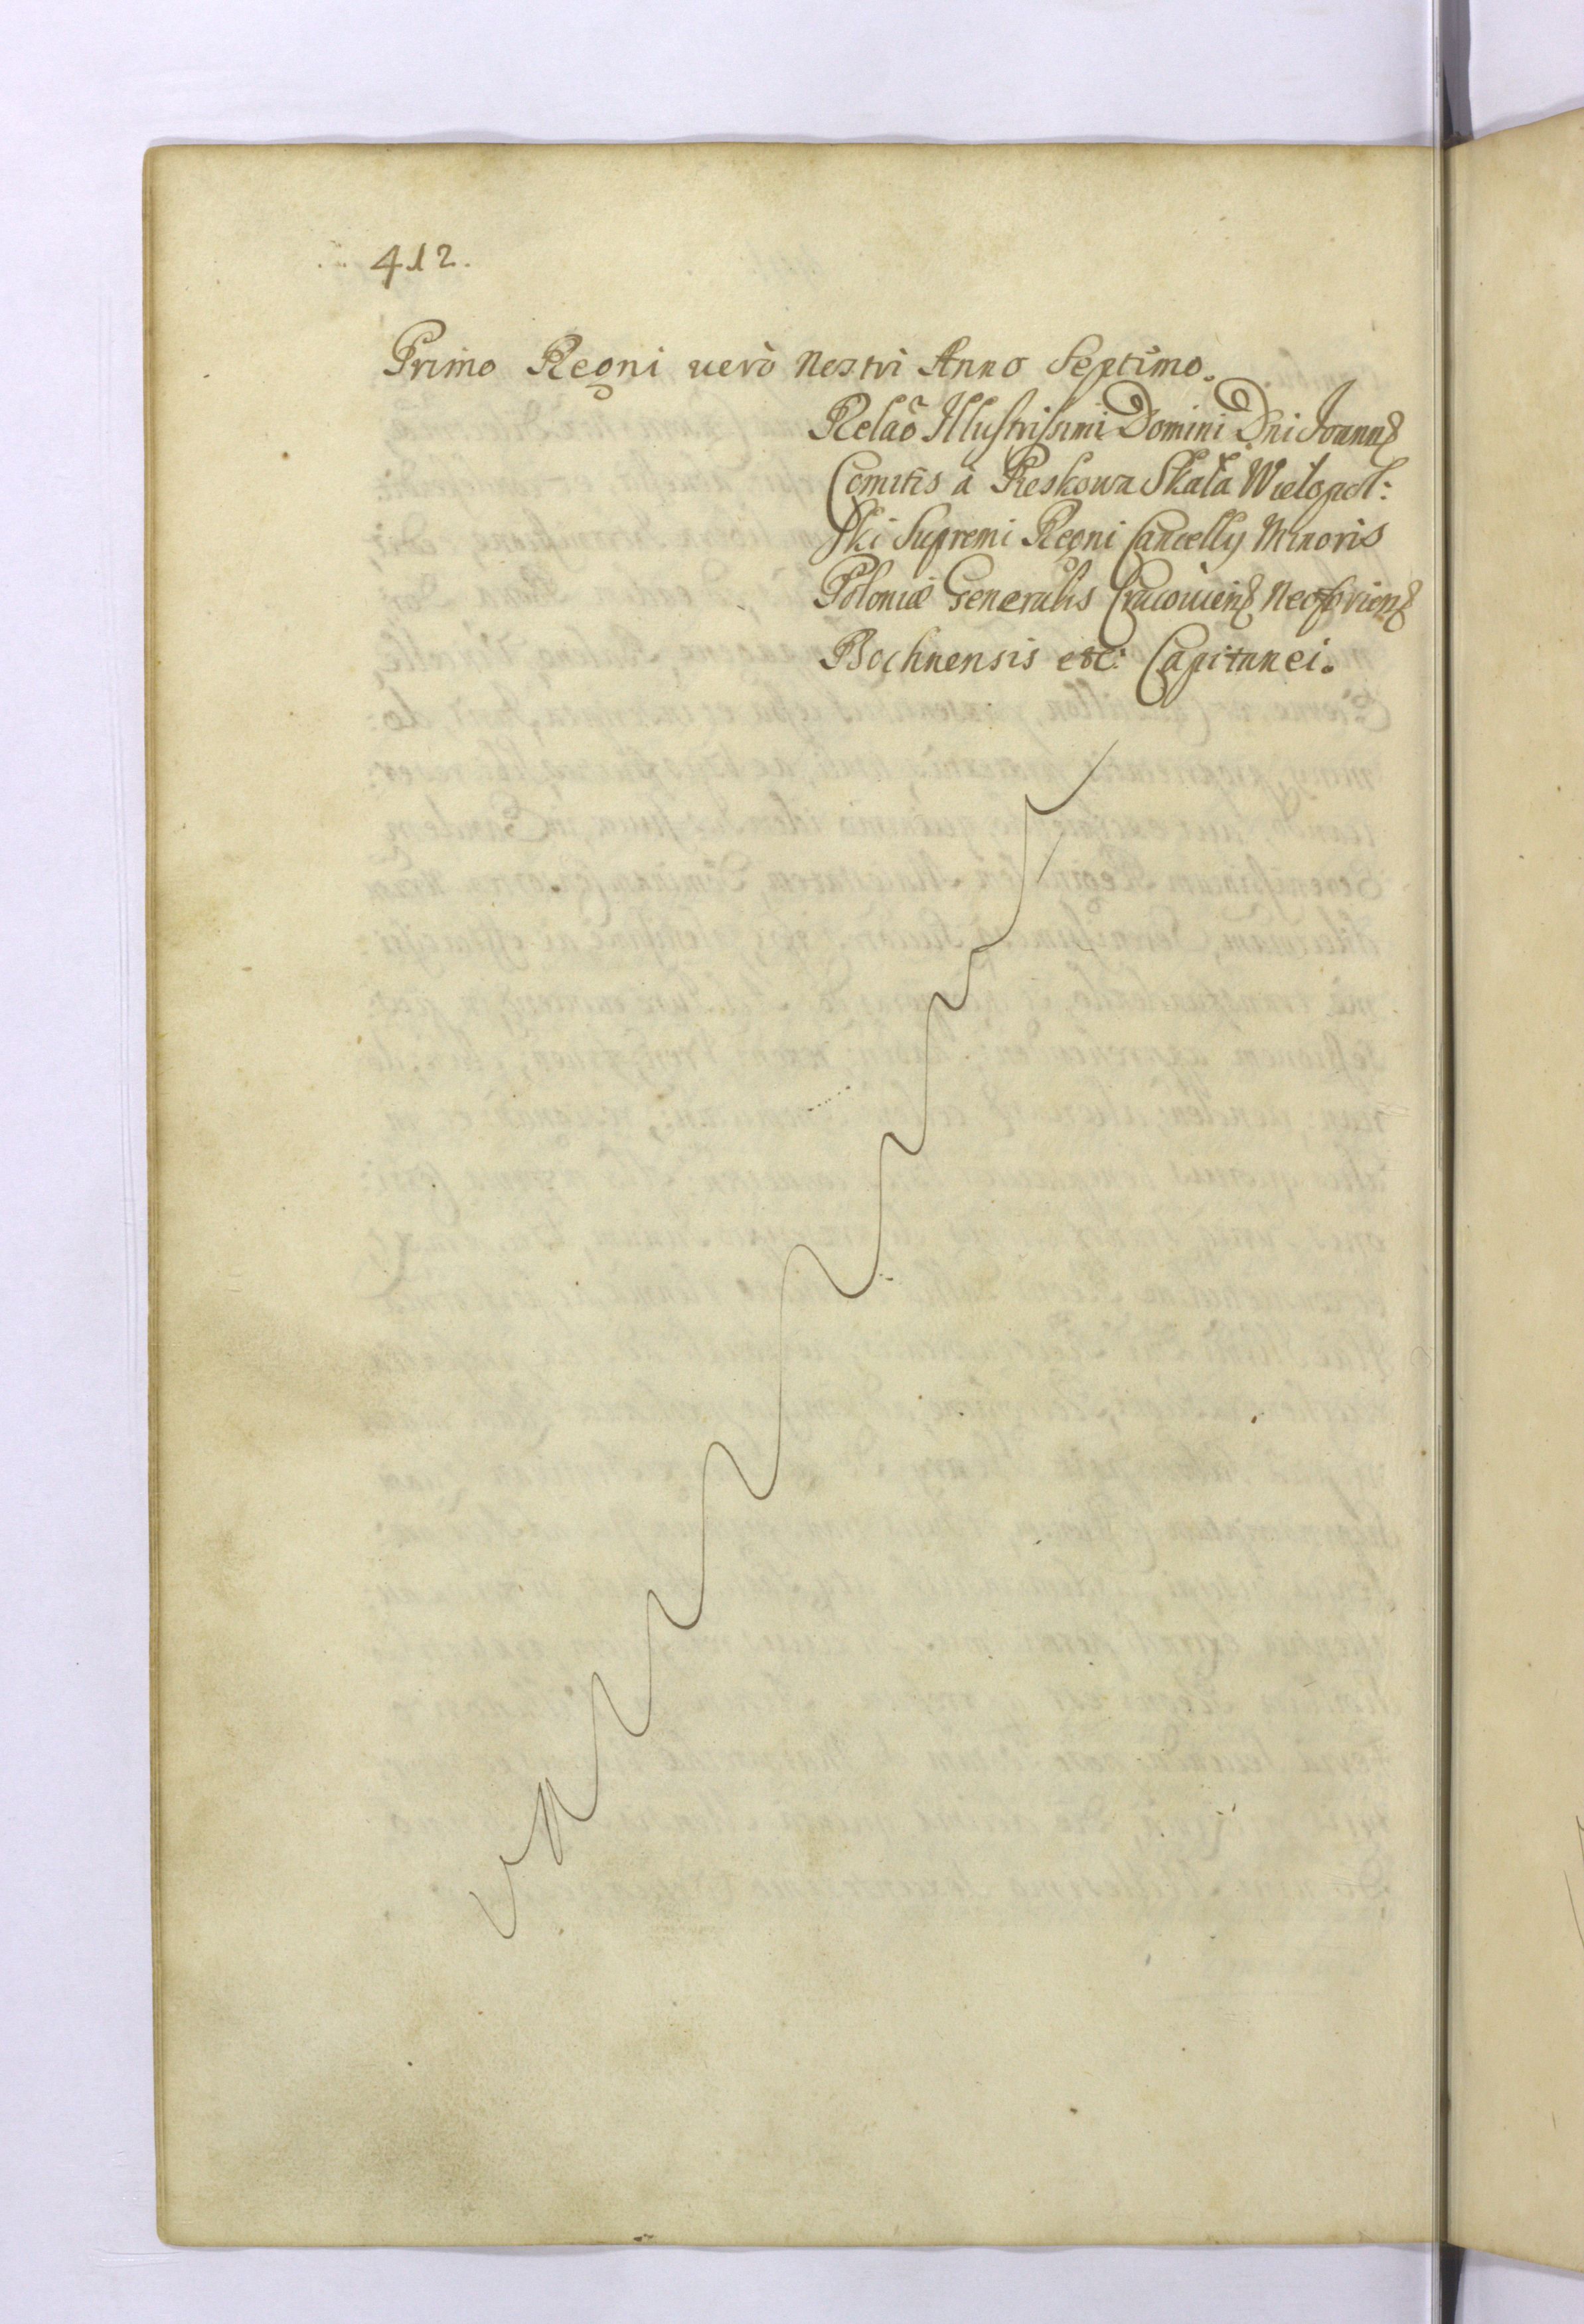 412.
Primo Regni uerò Nostri Anno Septimo.
Relaõ Illustrissimi Domini Dni Joannis
Comitis à Pieskowa Skała Wielopol:
ski Supremi Regni Cancellÿ Minoris
Poloniæ Generalis Cracouiens Neoforiens
Bochnensis etc: Capitanei.